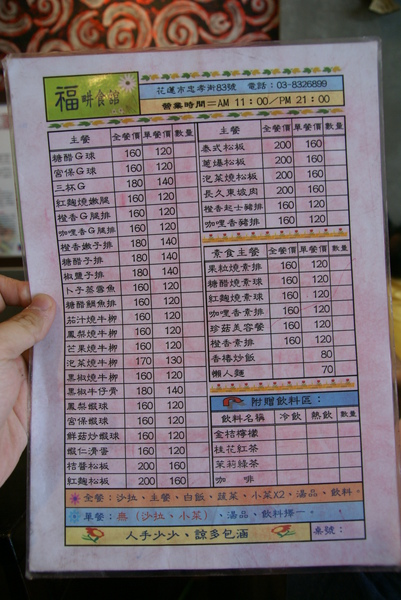 福畊食館
花蓮市忠孝街83號 電話：03-8326899
營業時間＝AM 11：00／PM 21：00
主餐 全餐價 單餐價 數量
糖醋G球 160 120
宮保G球 160 120
三杯G 180 140
紅麴燒嫩腿 160 120
橙香G腿排 160 120
咖哩香G腿排 160 120
橙香嫩子排 180 140
糖醋子排 180 140
椒鹽子排 180 140
卜子蒸雪魚 160 120
糖醋鯛魚排 160 120
茄汁燒牛柳 160 120
鳳梨燒牛柳 160 120
芒果燒牛柳 160 120
泡菜燒牛柳 170 130
黑椒燒牛柳 160 120
黑椒牛仔骨 180 140
鳳梨蝦球 160 120
宮保蝦球 160 120
鮮菇炒蝦球 160 120
蝦仁滑蛋 160 120
桔醬松板 200 160
紅麴松板 200 160
主餐 全餐價 單餐價 數量
泰式松板 200 160
蔥爆松板 200 160
泡菜燒松板 200 160
長久東坡肉 200 160
橙香起士豬排 160 120
咖哩香豬排 160 120
素食主餐 全餐價 單餐價 數量
果粒燒素排 160 120
糖醋燒素球 160 120
紅麴燒素球 160 120
咖哩香素排 160 120
珍菇美容餐 160 120
橙香素排 160 120
香椿炒飯 80
懶人麵 70
附贈飲料區：
飲料名稱 冷飲 熱飲 數量
金桔檸檬
桂花紅茶
茉莉綠茶
咖 啡
全餐：沙拉、主餐、白飯、蔬菜、小菜X2、湯品、飲料。
單餐：無（沙拉、小菜）、湯品、飲料擇一。
人手少少、諒多包涵
桌號：